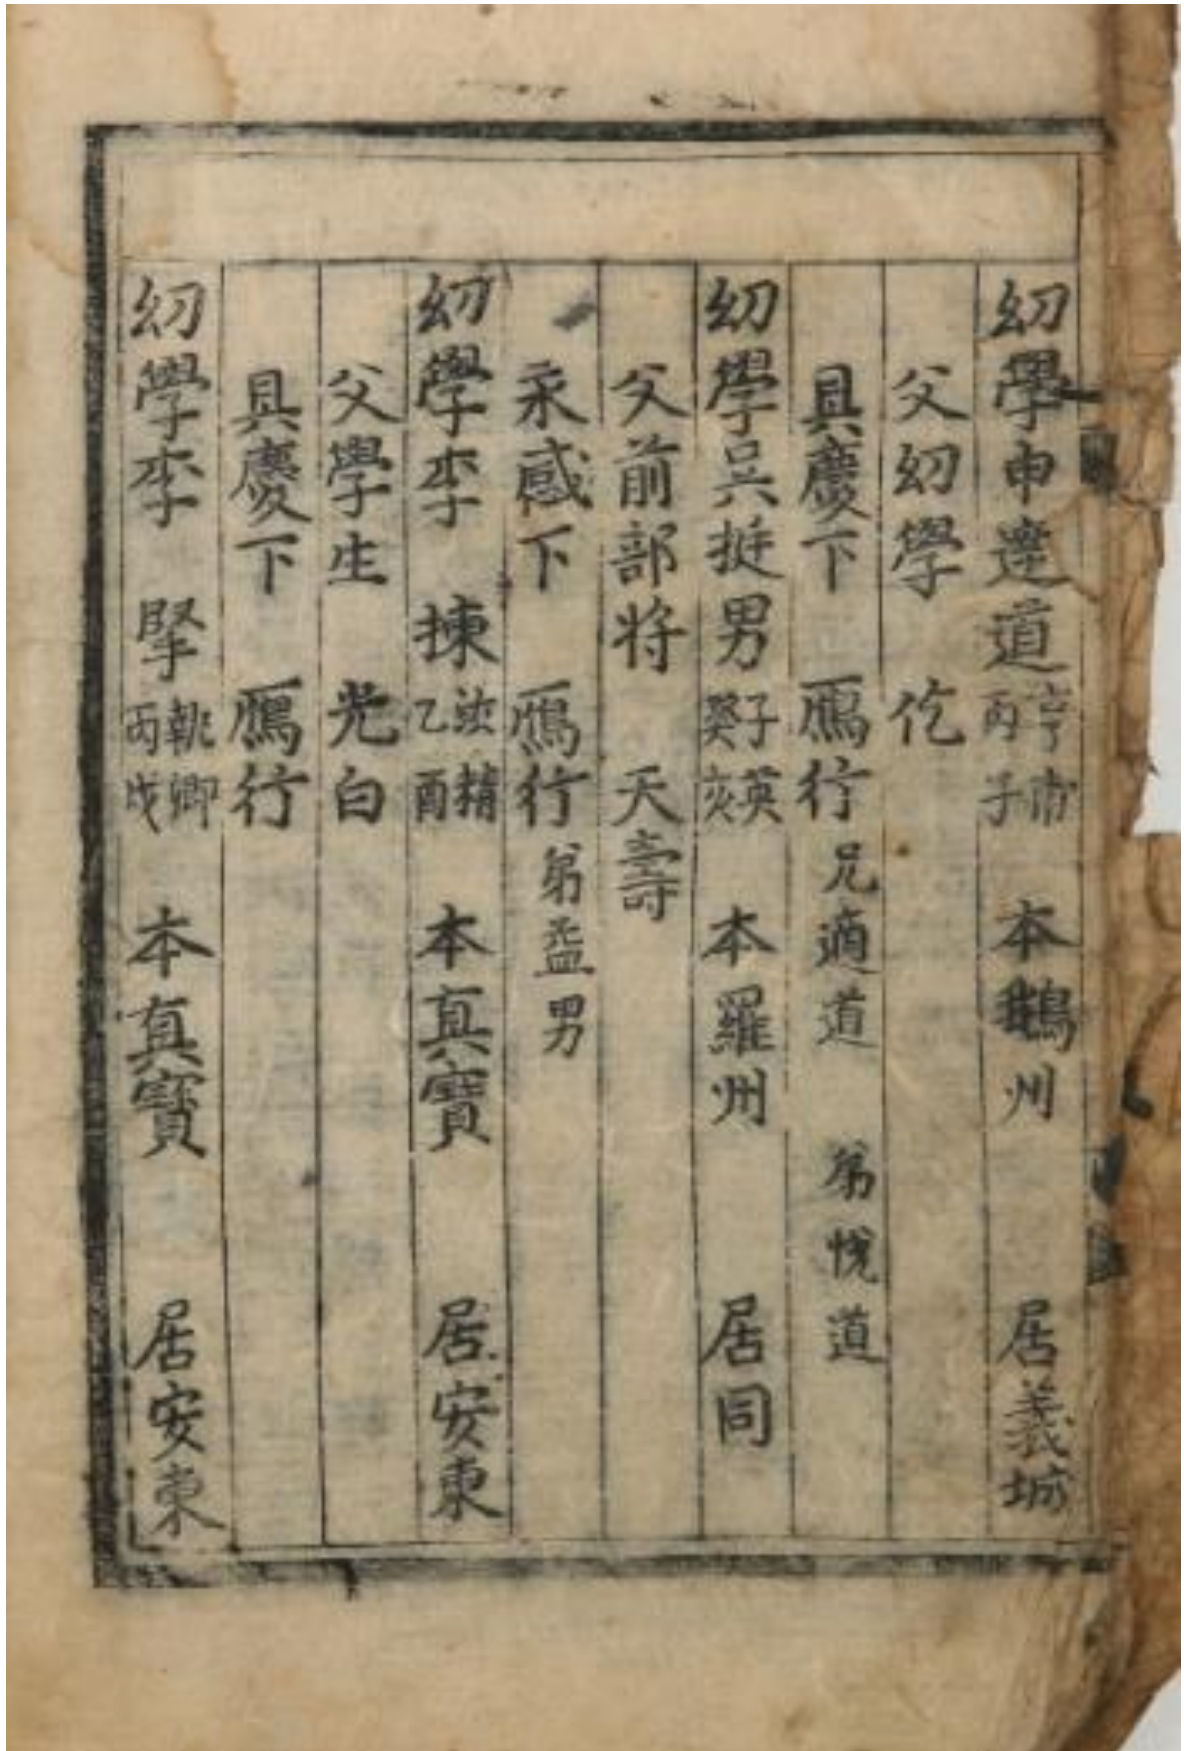 幼學申達道亨甫丙子 本鵝州 居義城
父幼學 仡
具慶下 鴈行兄適道 弟悅道
幼學吳挺男子英癸亥 本羅州 居同
父前部將 天壽
永感下 鴈行弟益男
幼學李 揀汝精乙酉 本真寶 居安東
父學生 光白
具慶下 鴈行
幼學李 㨒執卿丙戌 本真寶 居安東